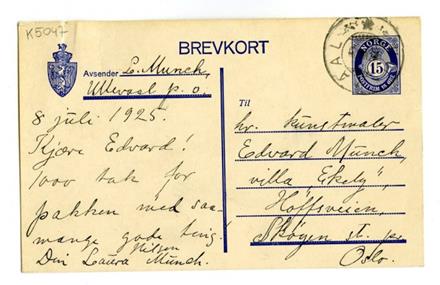 K5047
BREVKORT
Avsender L. Munch,
Ullevaal p. o.
8 juli 1925.
Kjære Edvard!
1000 tak for
pakken med saa-
mange gode ting!
Hilsen
Din Laura Munch.
NORGE
15
Til
hr. kunstmaler
Edvard Munch,
villa "Ekely",
Hoffsveien,
Skøyen st. pr.
Oslo.